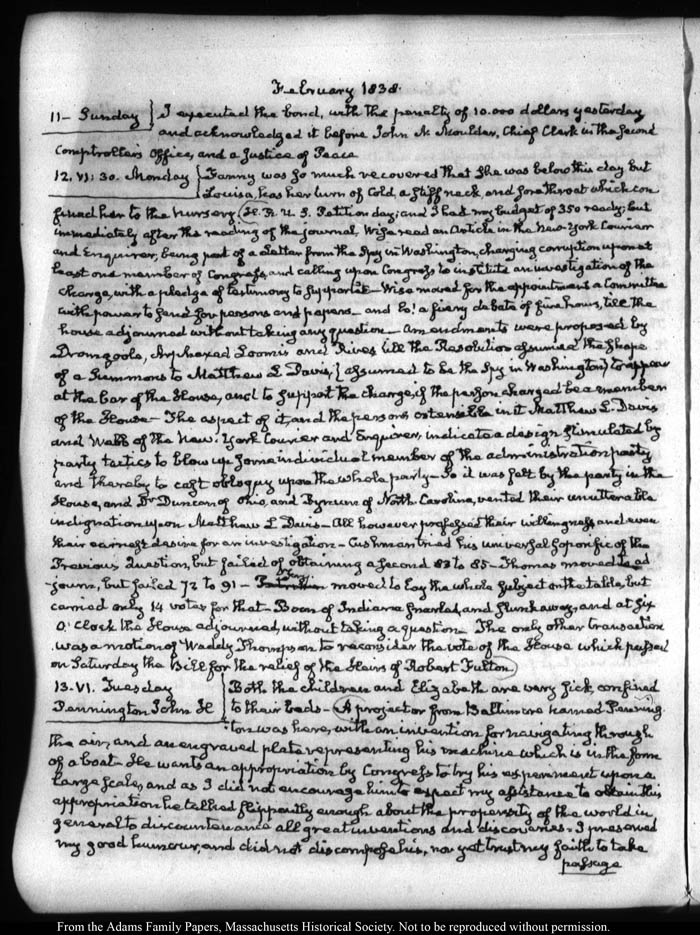 February 1838.
11 – Sunday } I executed the bond, with the penalty of 10.000 dollars yesterday
and acknowledged it before John N. Moulder, Chief Clerk in the Second
Comptroller's Office, and a Justice of Peace
12. VI: 30. Monday { Fanny was so much recovered that she was below this day but
Louisa, has her turn of Cold, a stiff neck and sore throat which con
fined her to the nursery. H. R. U. S. Petition day; and I had my budget of 350 ready; but
immediately after the reading of the journal, Wise read an Article in the New-York Courier
and Enquirer, being part of a Letter from the Spy in Washington, charging corruption upon at
least one member of Congress, and calling upon Congress to institute an investigation of the
charge, with a pledge of testimony to support it – Wise moved for the appointment a Committee
with power to send for persons and papers – and lo! a fiery debate of five hours, till the
house adjourned without taking any question – amendments were proposed by
Dromgoole, Arphaxed Loomis and Rives till the Resolution assumed the shape
of a Summons to Matthew L. Davis, { assumed to be the Spy in Washington) to appear
at the bar of the House, and to support the charge, if the person charged be a member
of the House – The aspect of it, and the persons ostensible in it Matthew L. Davis
and Webb of the New-York Courier and Enquirer, indicate a design stimulated by
party tactics to blow up some individual member of the administration party
and thereby to cast obloquy upon the whole party – So it was felt by the party in the
House, and Dr Duncan of Ohio, and Bynum of North-Carolina, vented their unutterable
indignation upon Matthew L Davis – All however professed their willingness and even
their earnest desire for an investigation – Cushman tried his universal soporific of the
Previous Question, but failed of obtaining a second 83 to 85 – Thomas moved to ad
journ, but failed 72 to 91 – moved to lay the whole subject on the table, but
carried only 14 votes for that – Boon of Indiana snarled, and slunk away, and at six
O'Clock the House adjourned, without taking a question. The only other transaction
was a motion of Waddy Thompson to reconsider the vote of the House which passed
on Saturday the Bill for the relief of the Heirs of Robert Fulton.
13. VI. Tuesday { Both the children and Elizabeth are very sick, confined
Pennington John H to their beds – A projector from Baltimore named Penning
ton was here, with an invention for navigating through
the air, and an engraved plate representing his machine which is in the form
of a boat – He wants an appropriation by Congress to try his experiment upon a
large scale, and as I did not encourage him to expect my assistance to obtain this
appropriation he talked flippantly enough about the propensity of the world in
general to discountenance all great inventions and discoveries. I preserved
my good humour, and did not discompose his, nor yet trust my faith to take
passage
From the Adams Family Papers, Massachusetts Historical Society. Not to be reproduced without permission.